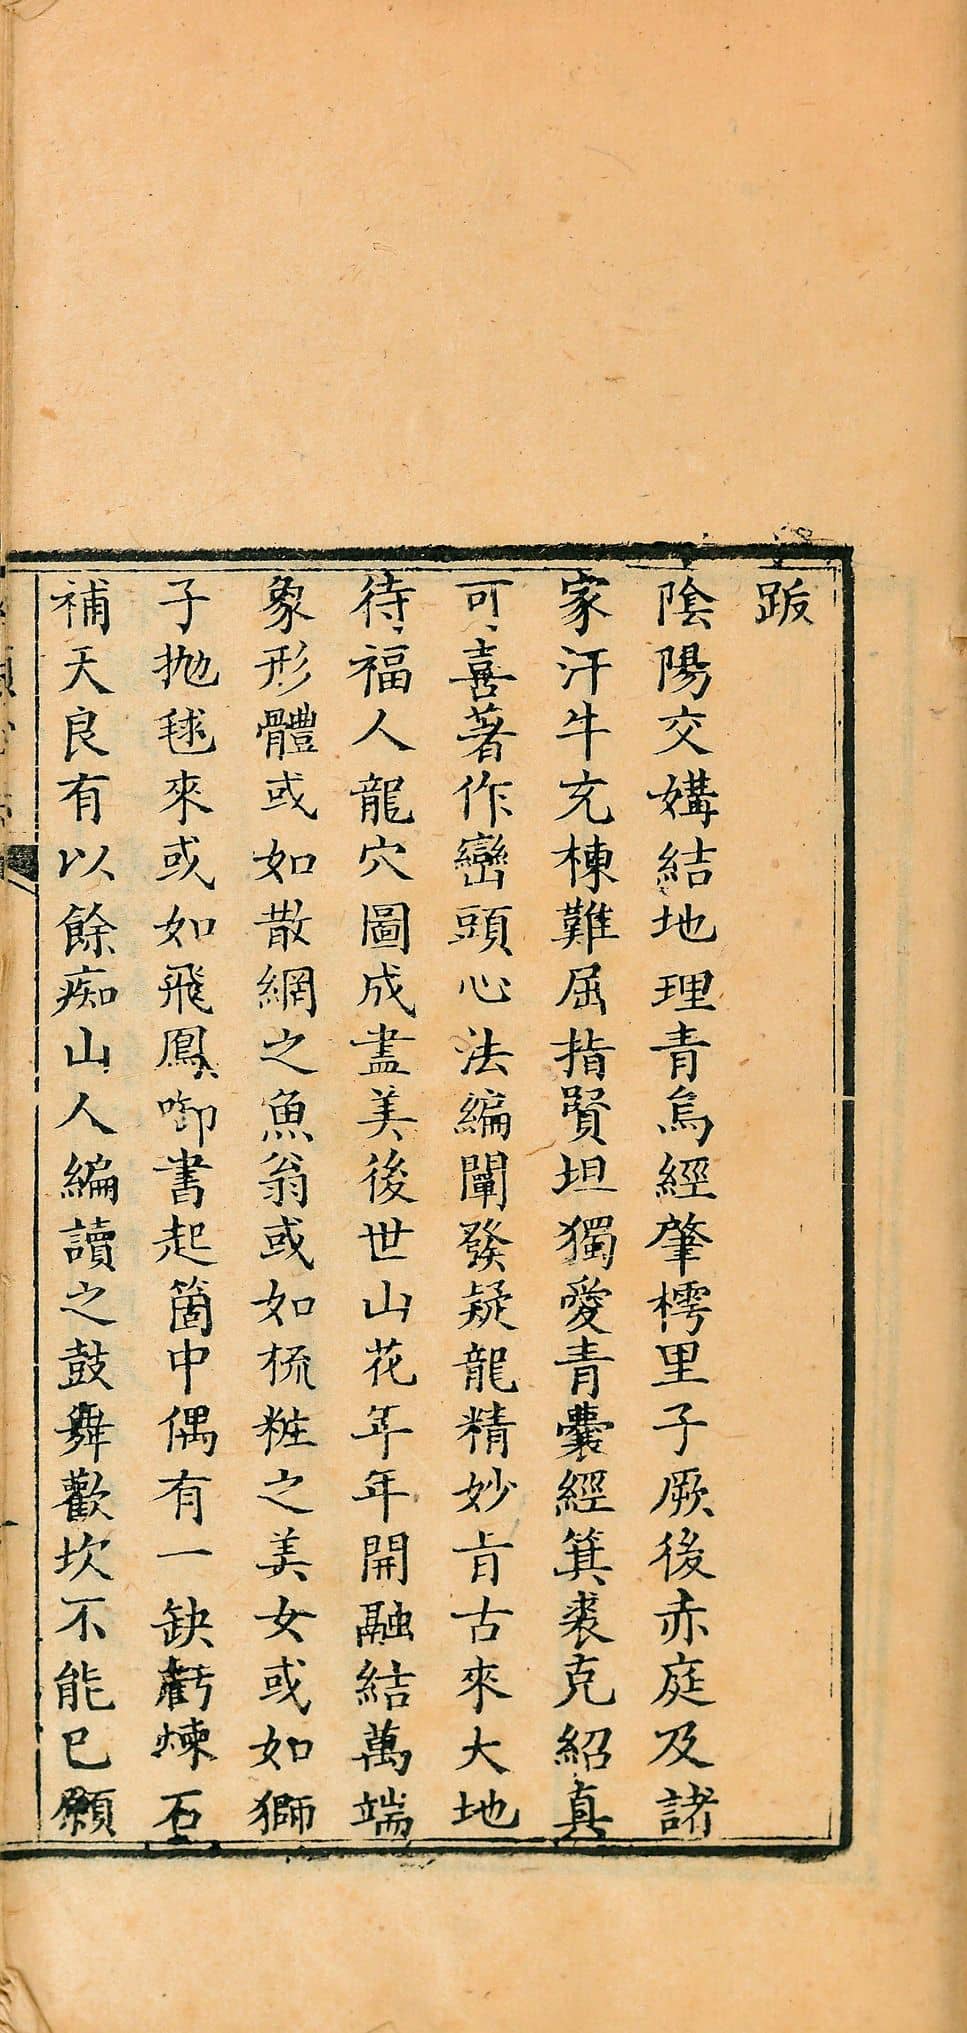 跋
陰陽交媾結地理青烏經肇樗里子厥後赤庭及諸
家汗牛充棟難屈指賢坦獨愛青囊經箕裘克紹真
可喜著作巒頭心法編闡發疑龍精妙旨古來大地
待福人龍穴圖成盡美後世山花年年開融結萬端
象形體或如散網之魚翁或如梳粧之美女或如獅
子拋毬來或如飛鳳啣書起箇中偶有一缺虧煉石
補天良有以餘痴山人編讀之鼓舞歡坎不能已願